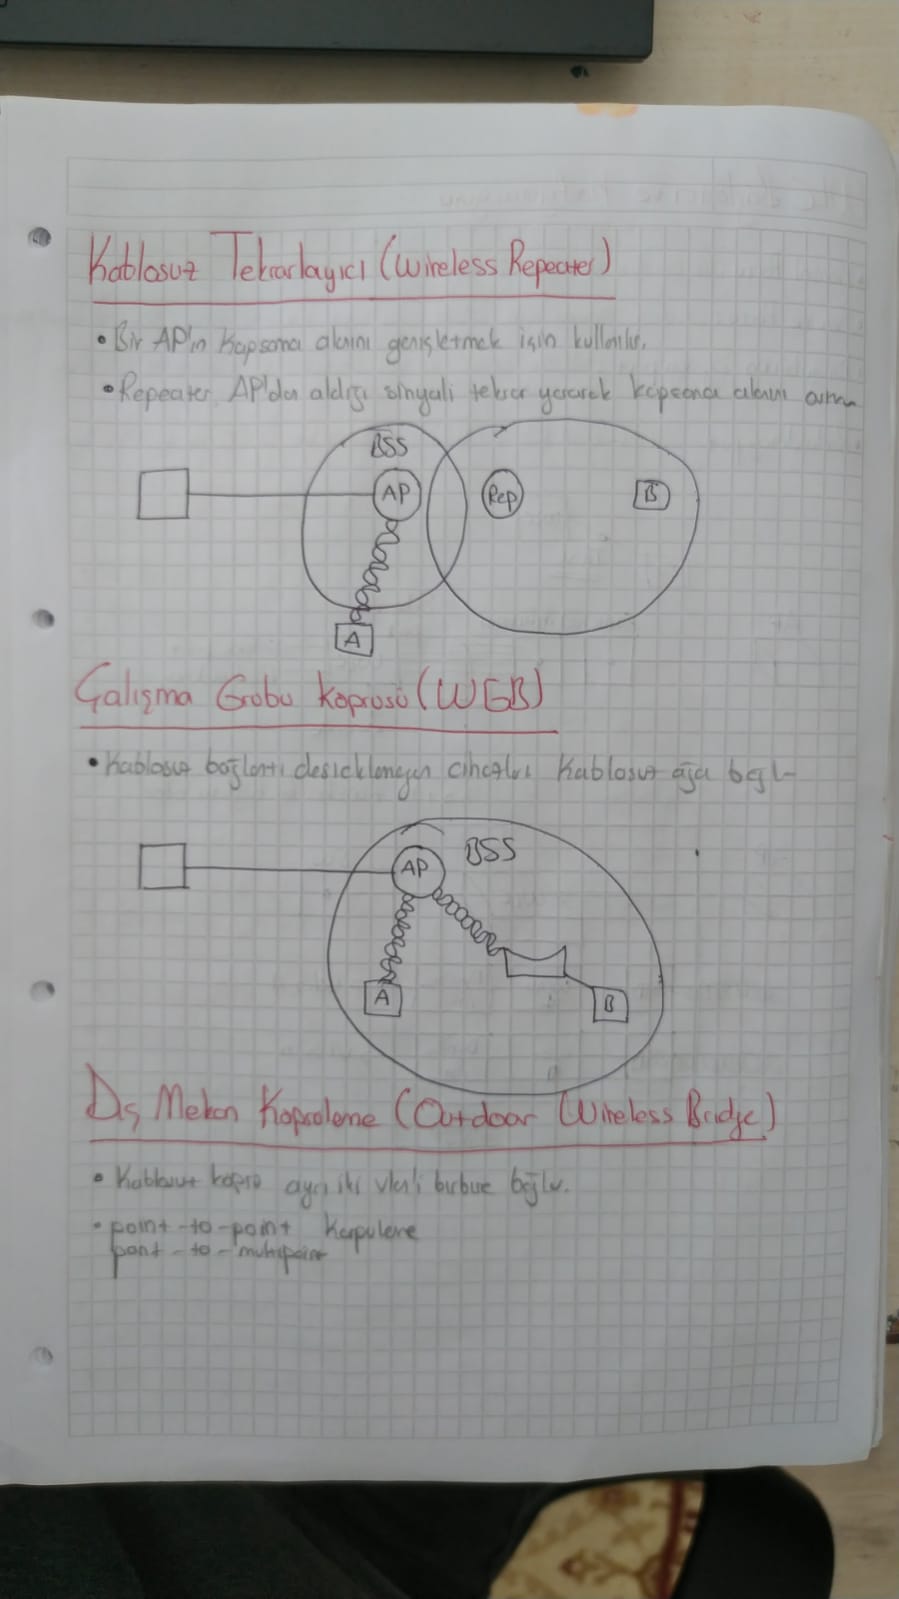 Kablosuz Tekrarlayıcı (Wireless Repeater)
• Bir AP'ın kapsama alanını genişletmek için kullanılır.
• Repeater AP'dan aldığı sinyali tekrar yayarak kapsama alanını
BSS
AP
Rep
B
A
Çalışma Grubu Köprüsü (WGB)
• Kablosuz bağlantı desteklemeyen cihazları kablosuz ağa bağl
BSS
AP
A
B
Dış Mekan Köprüleme (Outdoor Wireless Bridge)
• Kablosuz köprü ayrı iki birbirine bağlar.
• point-to-point
point-to-multipoint